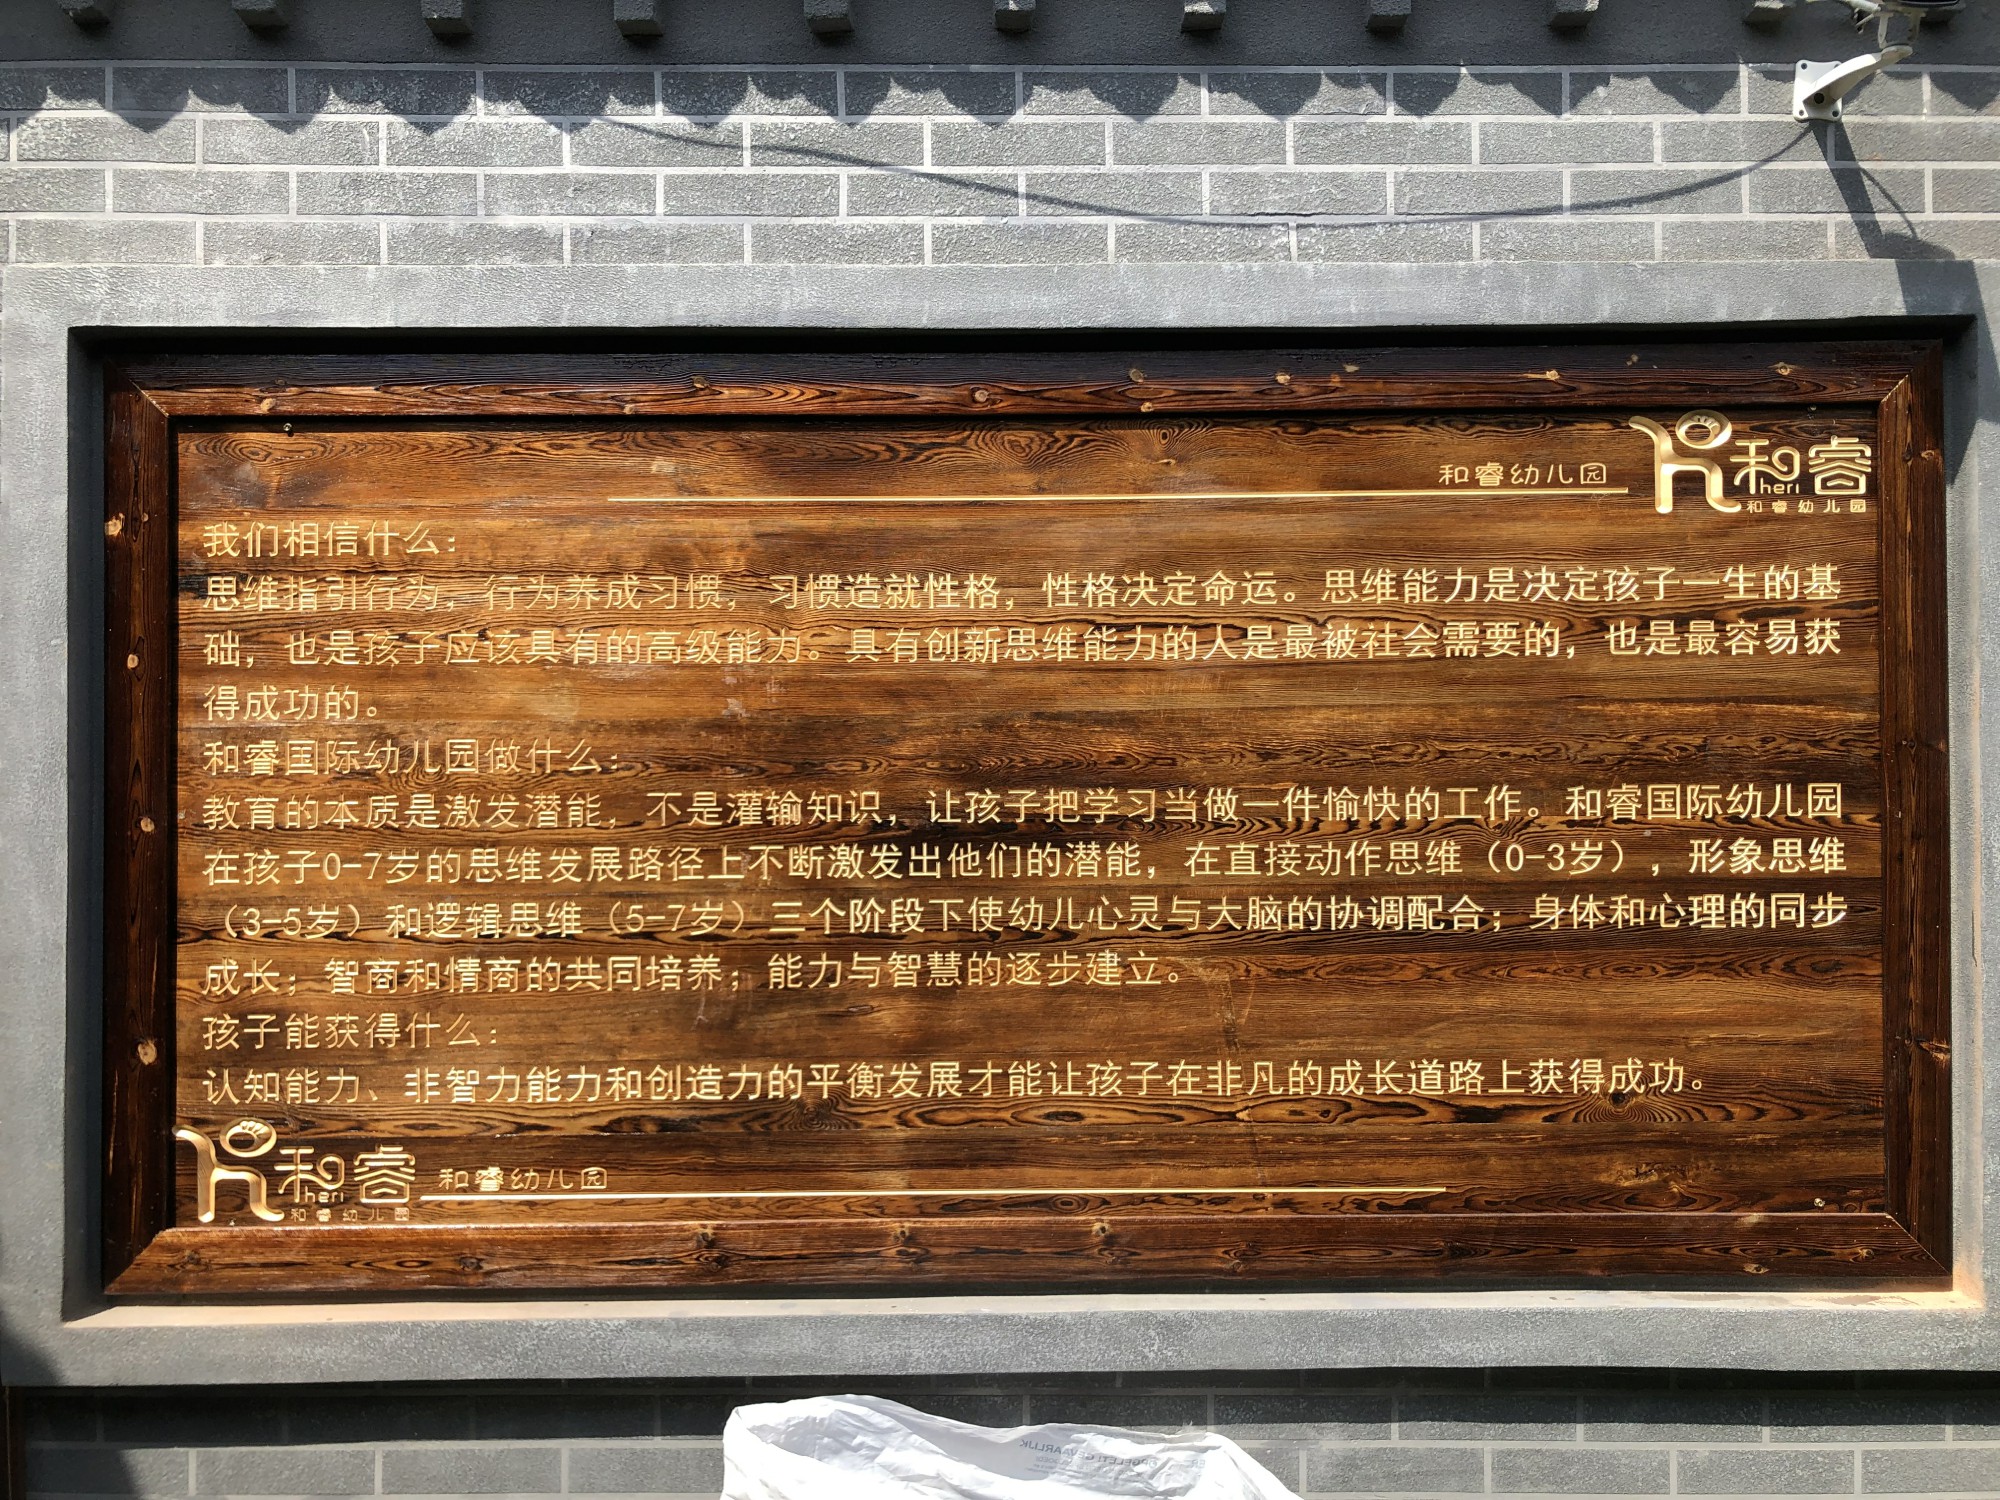 和睿幼儿园
和睿
heri
和睿幼儿园
我们相信什么：
思维指引行为，行为养成习惯，习惯造就性格，性格决定命运。思维能力是决定孩子一生的基
础，也是孩子应该具有的高级能力。具有创新思维能力的人是最被社会需要的，也是最容易获
得成功的。
和睿国际幼儿园做什么：
教育的本质是激发潜能，不是灌输知识，让孩子把学习当做一件愉快的工作。和睿国际幼儿园
在孩子0-7岁的思维发展路径上不断激发出他们的潜能，在直接动作思维（0-3岁），形象思维
（3-5岁）和逻辑思维（5-7岁）三个阶段下使幼儿心灵与大脑的协调配合；身体和心理的同步
成长；智商和情商的共同培养；能力与智慧的逐步建立。
孩子能获得什么：
认知能力、非智力能力和创造力的平衡发展才能让孩子在非凡的成长道路上获得成功。
和睿
heri
和睿幼儿园
和睿幼儿园